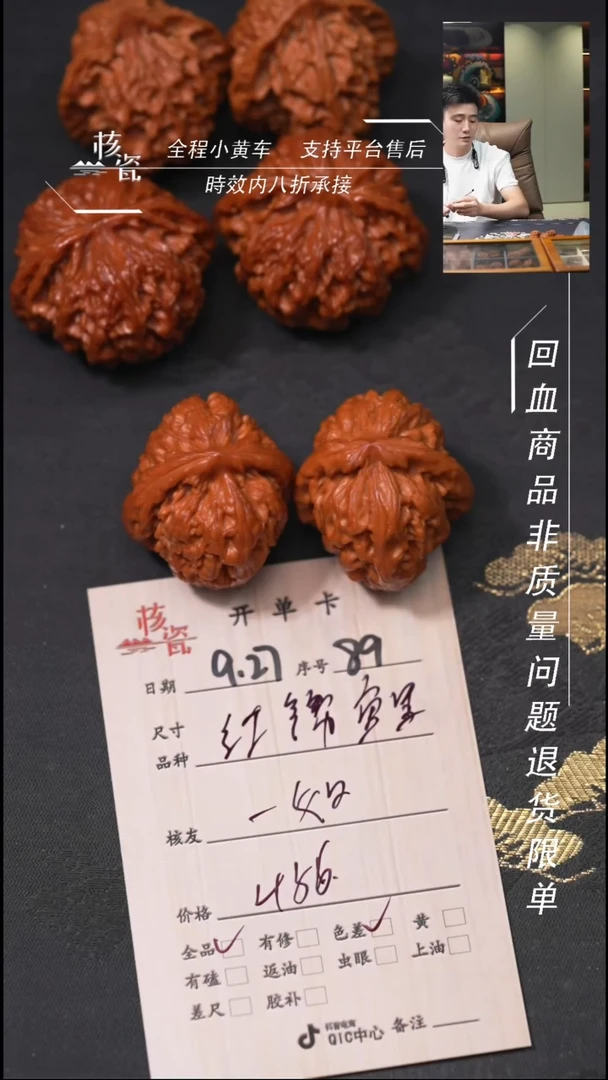 核瓷
全程小黄车 支持平台售后
時效内八折承接
回血商品非质量问题退货限单
核瓷
开单卡
日期 9.27 序号 89
尺寸
品种 红锦
核友 一
价格 456.
全品 有修 色差 黄
有磕 返油 虫眼 上油
差尺 胶补
抖音电商
QIC中心 备注